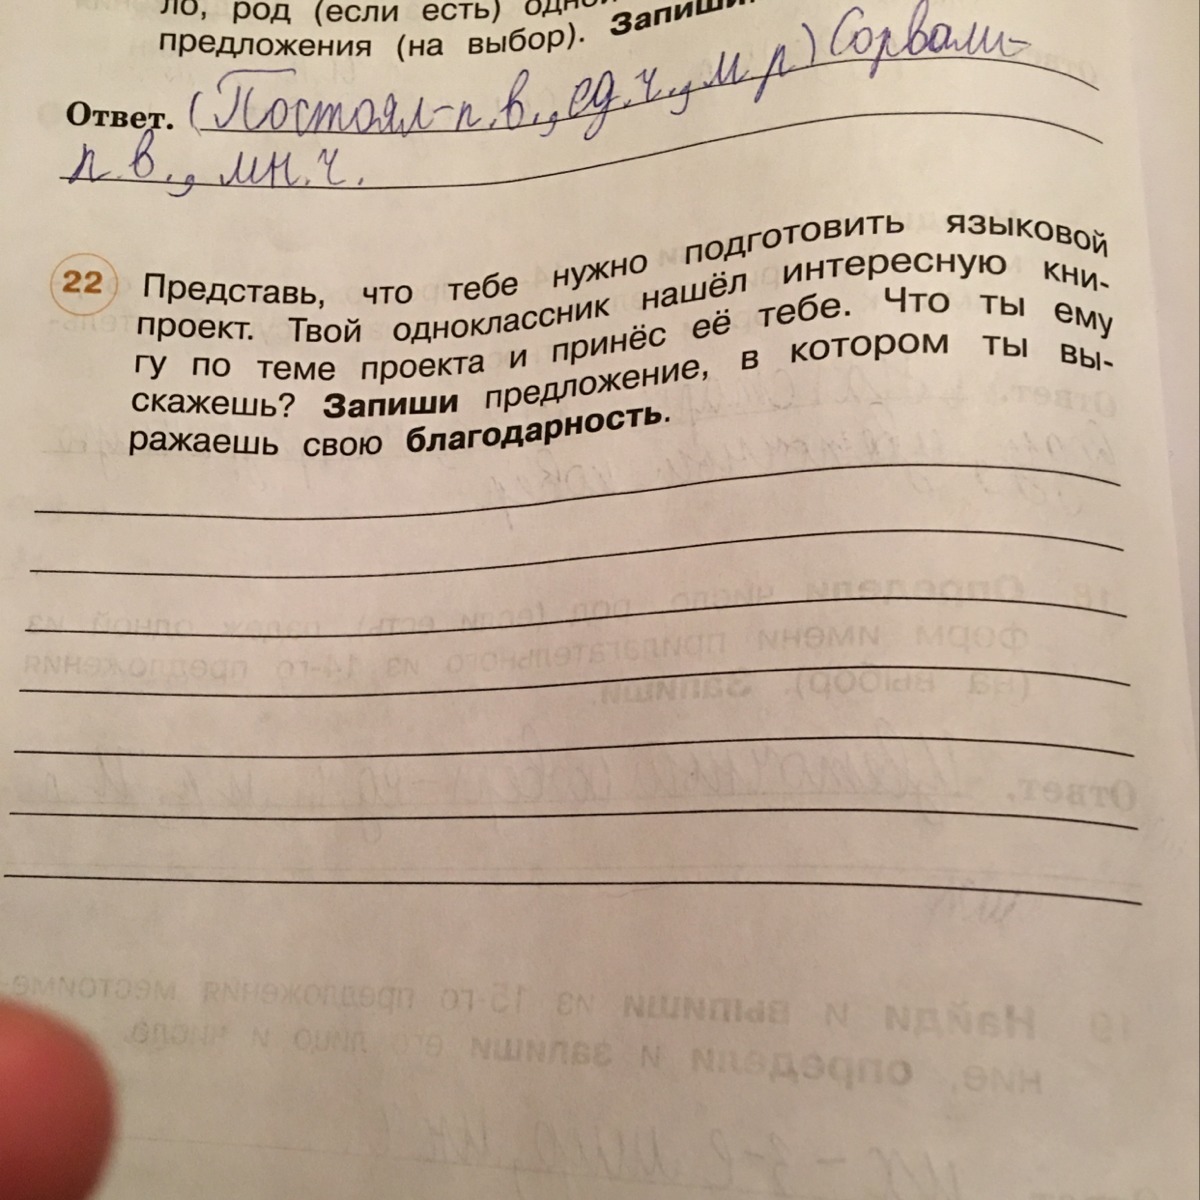 ло, род (если есть)
предложения (на выбор). Запиши.
Ответ. (Постоял-п.в., ед.ч., м.р) Сорвали-
п.в., мн.ч.
22 Представь, что тебе нужно подготовить языковой
проект. Твой одноклассник нашёл интересную кни-
гу по теме проекта и принёс её тебе. Что ты ему
скажешь? Запиши предложение, в котором ты вы-
ражаешь свою благодарность.